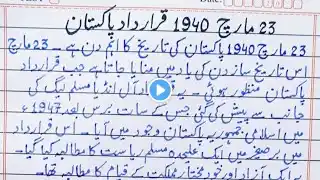 Date:
23 مارچ 1940 قرارداد پاکستان
23 مارچ 1940 پاکستان کی تاریخ کا اہم دن ہے ۔ 23 مارچ
اس تاریخ ساز دن کی یاد میں منایا جاتا ہے جب قرارداد
پاکستان منظور ہوئی ۔ یہ قرارداد آل انڈیا مسلم لیگ کی
جانب سے پیش کی گئی جس کے سات برس بعد 1947ء
میں اسلامی جمہوریہ پاکستان وجود میں آیا ۔ اس قرارداد
میں برصغیر میں ایک علیحدہ مسلم ریاست کا مطالبہ کیا گیا ۔
یہ ایک آزاد اور خود مختار مملکت کے قیام کا مطالبہ تھا ۔